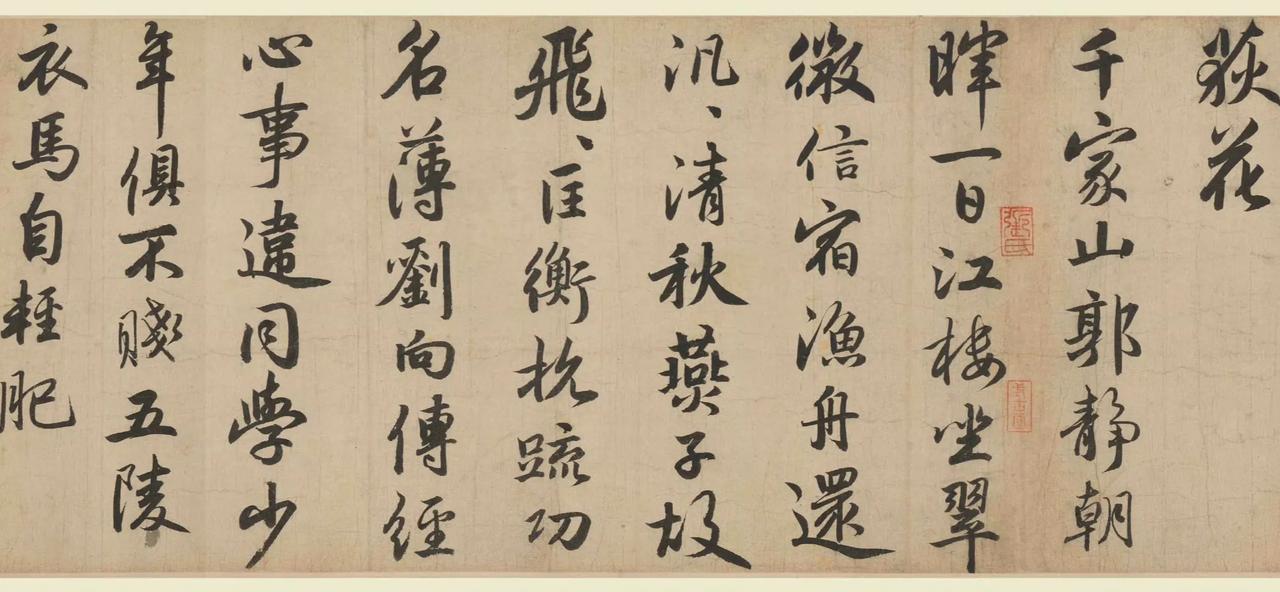 荻花
千家山郭静朝
暉一日江樓坐翠
微信宿漁舟還
汎〻清秋燕子故
飛〻匡衡抗疏功
名薄劉向傳經
心事違同學少
年俱不賤五陵
衣馬自輕肥